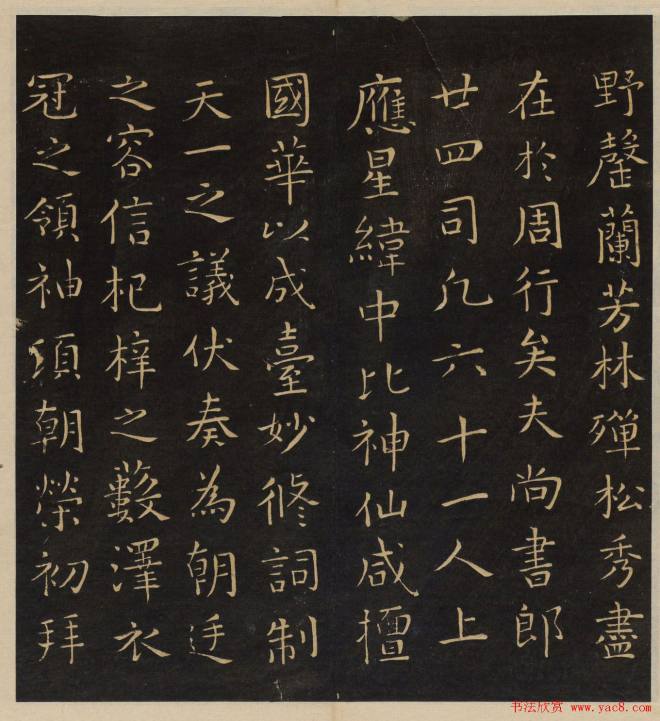 野罄蘭芳林殫松秀盡
在於周行矣夫尚書郎
廿四司凡六十一人上
應星緯中比神仙咸擅
國華以成臺妙修詞制
天一之議伏奏為朝廷
之容信杞梓之藪澤衣
冠之領袖頃朝榮初拜
书法欣赏 www.yac8.com